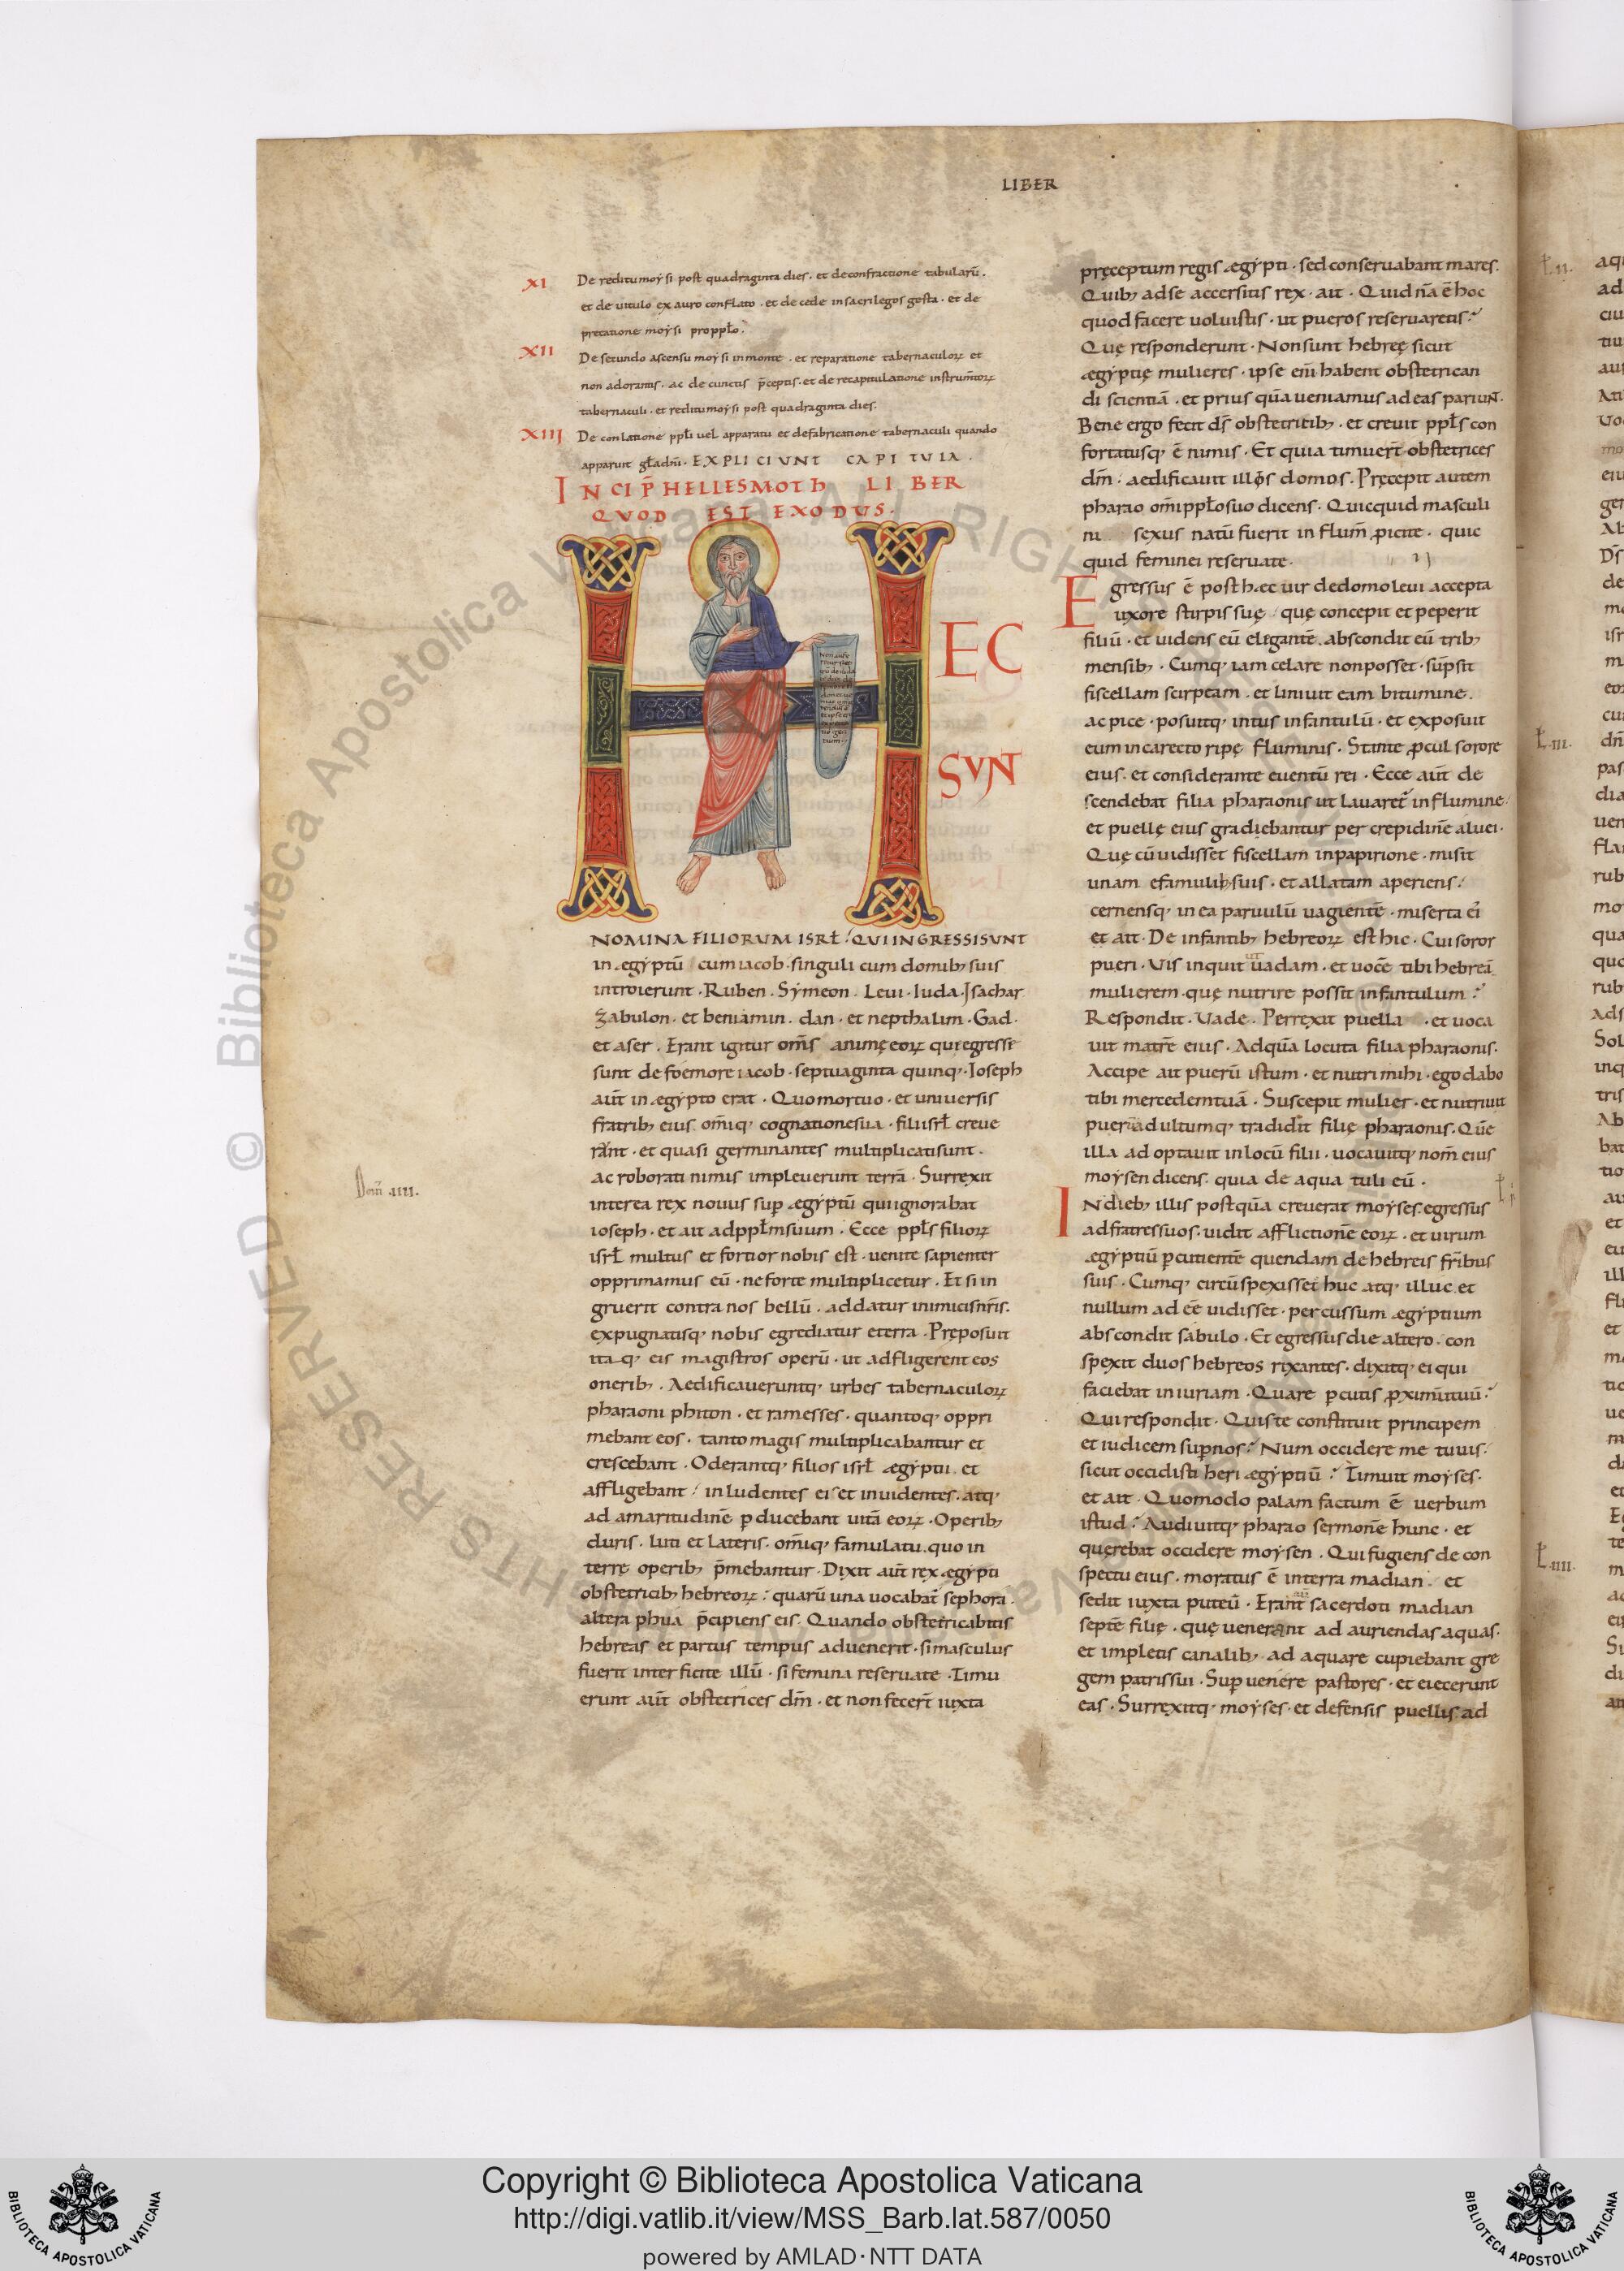 LIBER
XI De reditu moysi post quadraginta dies · et de confractione tabularū ·
et de uitulo ex auro conflato · et de cede in sacrilegos gesta · et de
precatione moysi pro pplo ·
XII De secundo ascensu moysi in monte · et reparatione tabernaculoꝝ et
non adorantis · ac de cunctis p̄ceptis · et de recapitulatione instrum̄toꝝ
tabernaculi · et reditu moysi post quadraginta dies ·
XIII De conlatione ppłi uel apparatu et de fabricatione tabernaculi quando
apparuit gładn̄i · EXPLICIUNT CAPITULA ·
INCIP̄ HELLESMOTH LIBER
QUOD EST EXODUS ·
HEC
SVN
NOMINA FILIORUM ISRŁ QUI INGRESSI SUNT
in ægyptū cum iacob · singuli cum domibꝫ suis
introierunt · Ruben · Symeon · Leui · Iuda · Isachar
Zabulon · et beniamin · dan · et nepthalim · Gad ·
et aser · Erant igitur om̄s animę eoꝝ qui egressi
sunt de foemore iacob · septuaginta quinqꝫ · Ioseph
aūt in ægypto erat · Quo mortuo · et uniuersis
fratribꝫ eius om̄iqꝫ cognatione sua · filii isrł creue
rant · et quasi germinantes multiplicati sunt ·
ac roborati nimis impleuerunt terrā · Surrexit
interea rex nouus suꝑ ægyptū qui ignorabat
ioseph · et ait ad ppłm suum · Ecce ppłs filioꝝ
isrł multus et fortior nobis est · uenite sapienter
opprimamus eū · ne forte multiplicetur · Et si in
gruerit contra nos bellū · addatur inimicis nr̄is ·
expugnatisqꝫ nobis egrediatur e terra · Preposuit
itaqꝫ eis magistros operū · ut adfligerent eos
oneribꝫ · Aedificaueruntqꝫ urbes tabernaculoꝝ
pharaoni phiton · et ramesses · quantoqꝫ oppri
mebant eos · tanto magis multiplicabantur et
crescebant · Oderantqꝫ filios isrł ægyptii et
affligebant inludentes eis et inuidentes · atqꝫ
ad amaritudinē ꝑducebant uitā eoꝝ · Operibꝫ
duris · luti et lateris · om̄iqꝫ famulatu quo in
terrę operibꝫ p̄mebantur · Dixit aūt rex ægypti
obstetricibꝫ hebreoꝝ · quarū una uocabat̄ sephora ·
altera phua p̄cipiens eis · Quando obstetricabitis
hebreas et partus tempus aduenerit · si masculus
fuerit interficite illū · si femina reseruate · Timu
erunt aūt obstetrices dm̄ · et non fecer̄t iuxta
pręceptum regis ægypti · sed conseruabant mares ·
Quibꝫ ad se accersitis rex · ait · Quid nā ē hoc
quod facere uoluistis · ut pueros reseruaretis
Quę responderunt · Non sunt hebreę sicut
ægyptię mulieres · ipse eni̅ habent obstetrican
di scientiā · et prius quā ueniamus ad eas pariunt ·
Bene ergo fecit ds̄ obstetricibꝫ · et creuit ppłs con
fortatusqꝫ ē nimis · Et quia timuer̄t obstetrices
dm̄ · aedificauit illis domos · Pręcepit autem
pharao om̄i ppło suo dicens · Quicquid masculi
ni sexus natū fuerit in flum̄ ꝓicite · quic
quid feminei reseruate ·
Egressus ē post hæc uir de domo leui accepta
uxore stirpis suę quę concepit et peperit
filiū · et uidens eū elegantē abscondit eū tribꝫ
mensibꝫ · Cumqꝫ iam celare non posset · sūpsit
fiscellam scirpeam · et liniuit eam bitumine
ac pice · posuitqꝫ intus infantulū · et exposuit
eum in carecto ripę fluminis · Stante ꝓcul sorore
eius · et considerante euentū rei · Ecce aūt de
scendebat filia pharaonis ut lauaret̄ in flumine
et puellę eius gradiebantur per crepidinē aluei ·
Quę cū uidisset fiscellam in papirione · misit
unam e famulibꝫ suis · et allatam aperiens
cernensqꝫ in ea paruulū uagientē · miserta ei
et ait · De infantibꝫ hebreoꝝ est hic · Cui soror
pueri · Uis inquit uadam · et uocē tibi hebreā
mulierem · quę nutrire possit infantulum
Respondit · Uade · Perrexit puella · et uoca
uit matrē eius · Ad quā locuta filia pharaonis ·
Accipe ait puerū istum · et nutri mihi · ego dabo
tibi mercedem tuā · Suscepit mulier · et nutriuit
puerū adultumqꝫ tradidit filię pharaonis · Quē
illa adoptauit in locū filii · uocauitqꝫ nom̄ eius
moysen dicens · quia de aqua tuli eū ·
In diebꝫ illis postquā creuerat moyses egressus
ad fratres suos · uidit afflictionē eoꝝ · et uirum
ægyptiū ꝑcutientē quendam de hebreis fr̄ibus
suis · Cumqꝫ circū spexisset huc atqꝫ illuc et
nullum adēē uidisset · percussum ægyptium
abscondit sabulo · Et egressus die altero · con
spexit duos hebreos rixantes · dixitqꝫ ei qui
faciebat iniuriam · Quare ꝑcutis ꝓximū tuū
Qui respondit · Quis te constituit principem
et iudicem suꝑ nos Num occidere me tu uis
sicut occidisti heri ægyptiū Timuit moyses ·
et ait · Quomodo palam factum ē uerbum
istud Audiuitqꝫ pharao sermonē hunc · et
querebat occidere moysen · Qui fugiens de con
spectu eius · moratus ē in terra madian · et
sedit iuxta puteū · Erant sacerdoti madian
septē filię · quę uenerant ad auriendas aquas ·
et impletis canalibꝫ · adaquare cupiebant gre
gem patris sui · Suꝑuenere pastores · et eiecerunt
eas · Surrexitqꝫ moyses · et defensis puellis ad
© Biblioteca Apostolica Vaticana ALL RIGHTS RESERVED
Copyright © Biblioteca Apostolica Vaticana
http://digi.vatlib.it/view/MSS_Barb.lat.587/0050
powered by AMLAD·NTT DATA
BIBLIOTECA APOSTOLICA VATICANA
BIBLIOTECA APOSTOLICA VATICANA